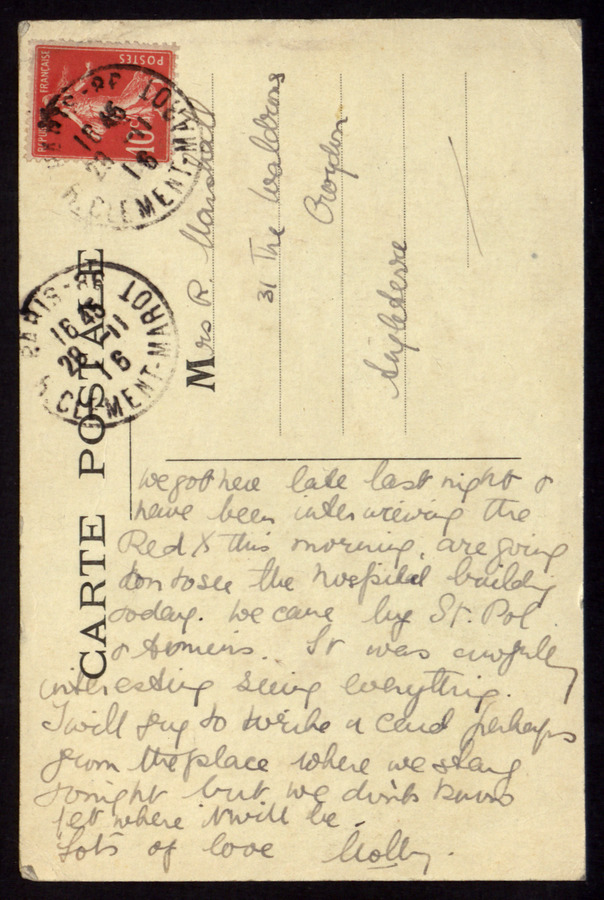 CARTE POSTALE
RÉPUBLIQUE FRANÇAISE
POSTES
10c
PARIS-
16 45
28 -11
16
R. CLEMENT-MAROT
PARIS-
16 45
28 -11
16
R. CLEMENT-MAROT
Mrs R. Marshall
31 The Waldrons
Croydon
Angleterre
We got here late last night &
have been interviewing the
Red X this morning, are going
to see the hospital building
today. We came by St. Pol
& Amiens. It was awfully
interesting seeing everything.
I will try to write a card perhaps
from the place where we stay
tonight but we don't know
yet where it will be.
Lots of love Molly.